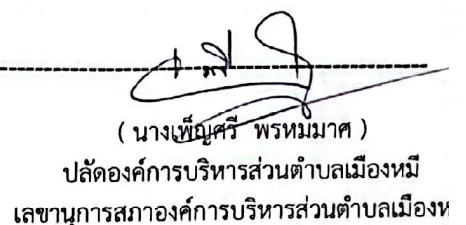 ( นางเพ็ญศรี พรหมมาศ )
ปลัดองค์การบริหารส่วนตำบลเมืองหมี
เลขานุการสภาองค์การบริหารส่วนตำบลเมืองห